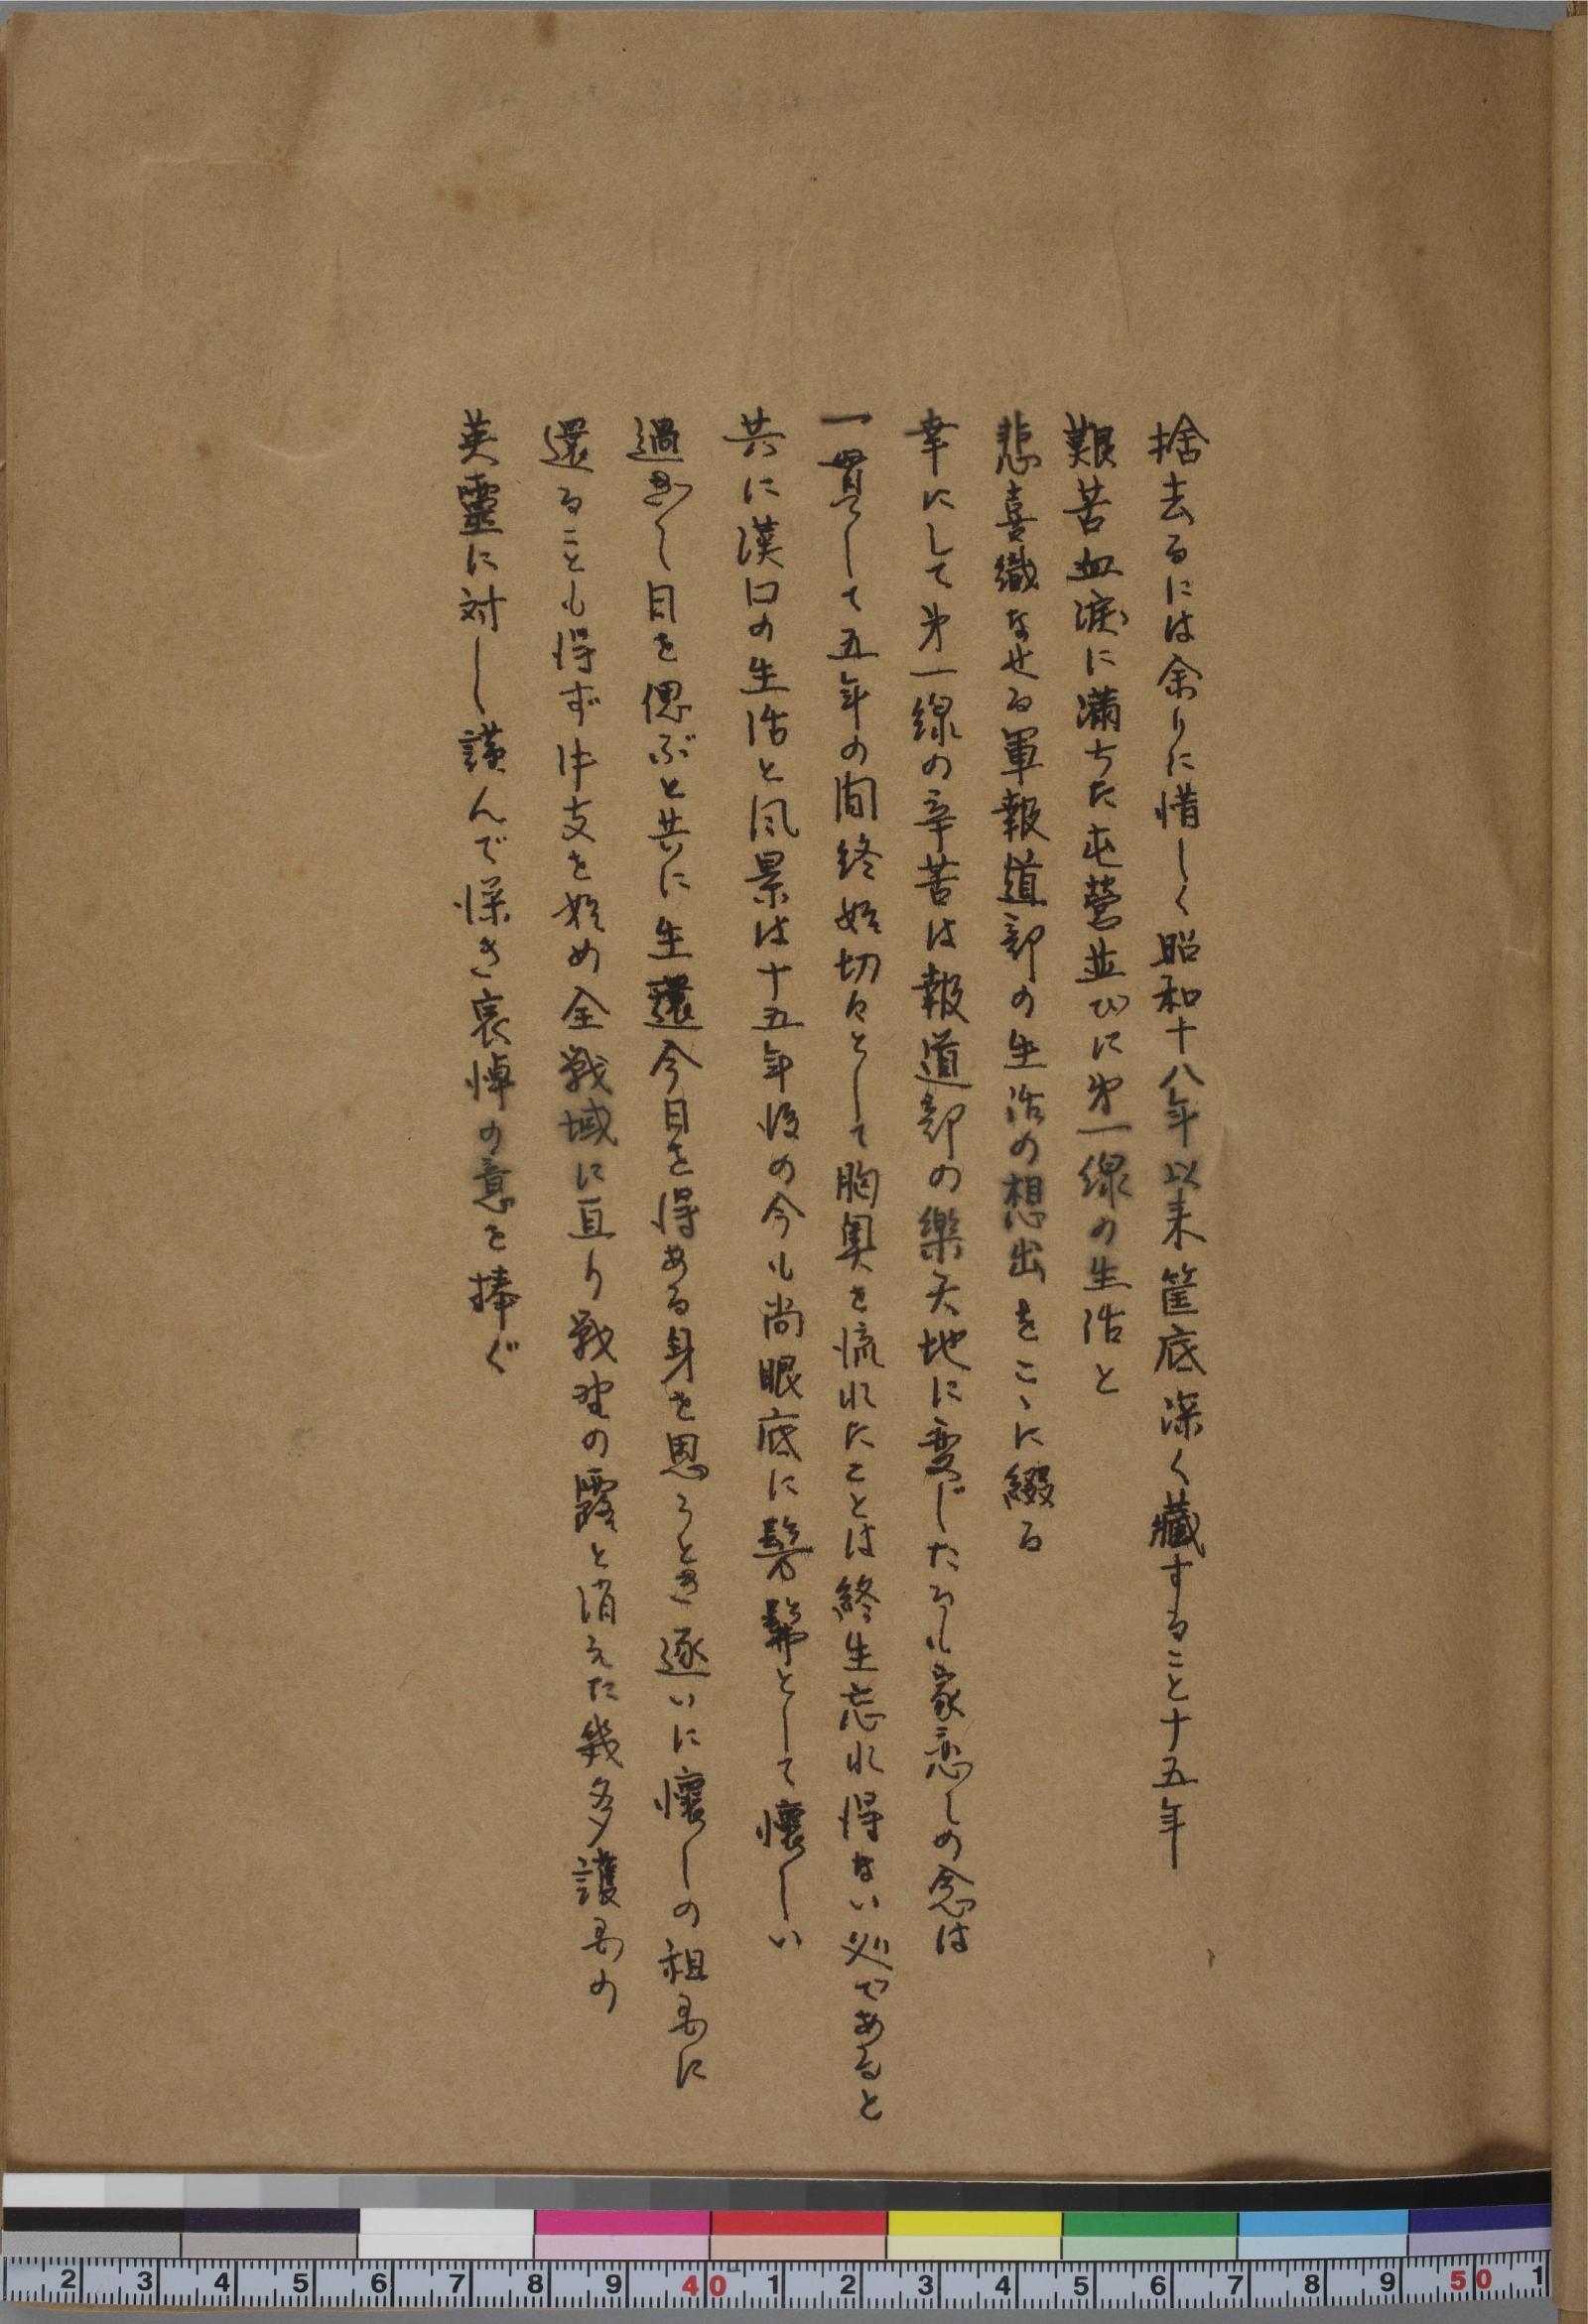 捨去るには余りに惜しく昭和十八年以来筐底深く蔵すること十五年
艱苦血涙に満ちた屯營並びに第一線の生活と
悲喜織なせる軍報道部の生活の想出をこゝに綴る
幸にして第一線の辛苦は報道部の樂天地に変じたるも家恋しの念は
一貫して五年の間終始切々として胸奥を流れたことは終生忘れ得ない処であると
共に漢口の生活と風景は十五年後の今も尚眼底に髣髴として懐しい
過ぎし日を偲ぶと共に生還今日を得ある身を思うとき逐いに懐しの祖国に
還ることも得ず中支を始め全戦域に亘り戦野の露と消えた幾多護国の
英靈に対し謹んで深き哀悼の意を捧ぐ
2 3 4 5 6 7 8 9 40 1 2 3 4 5 6 7 8 9 50 1